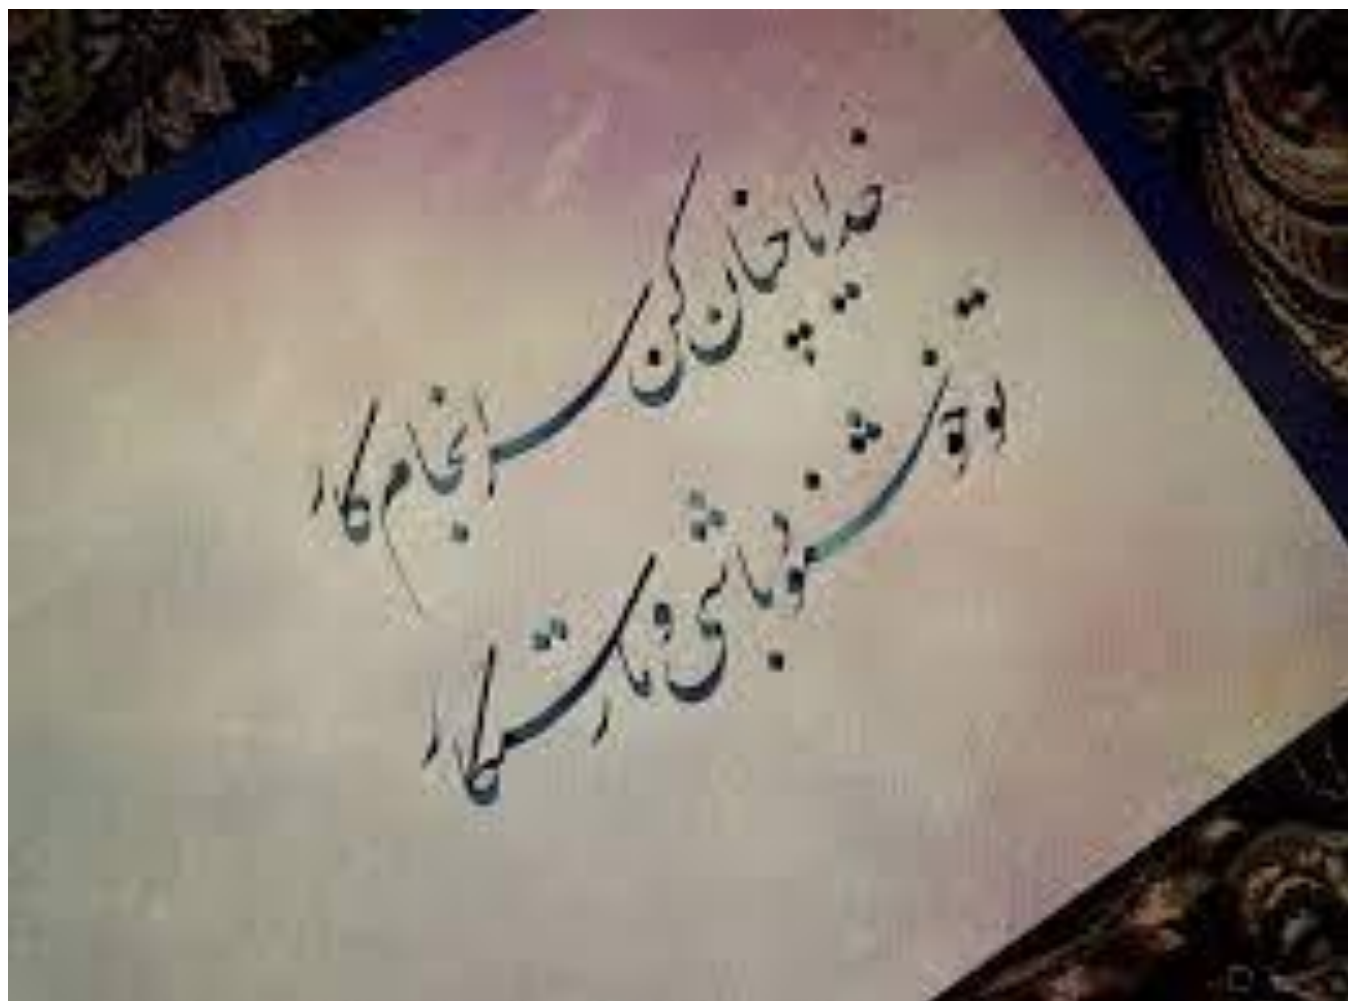 خدایا چنان کن سرانجام کار
تو خوشنود باشی و ما رستگار